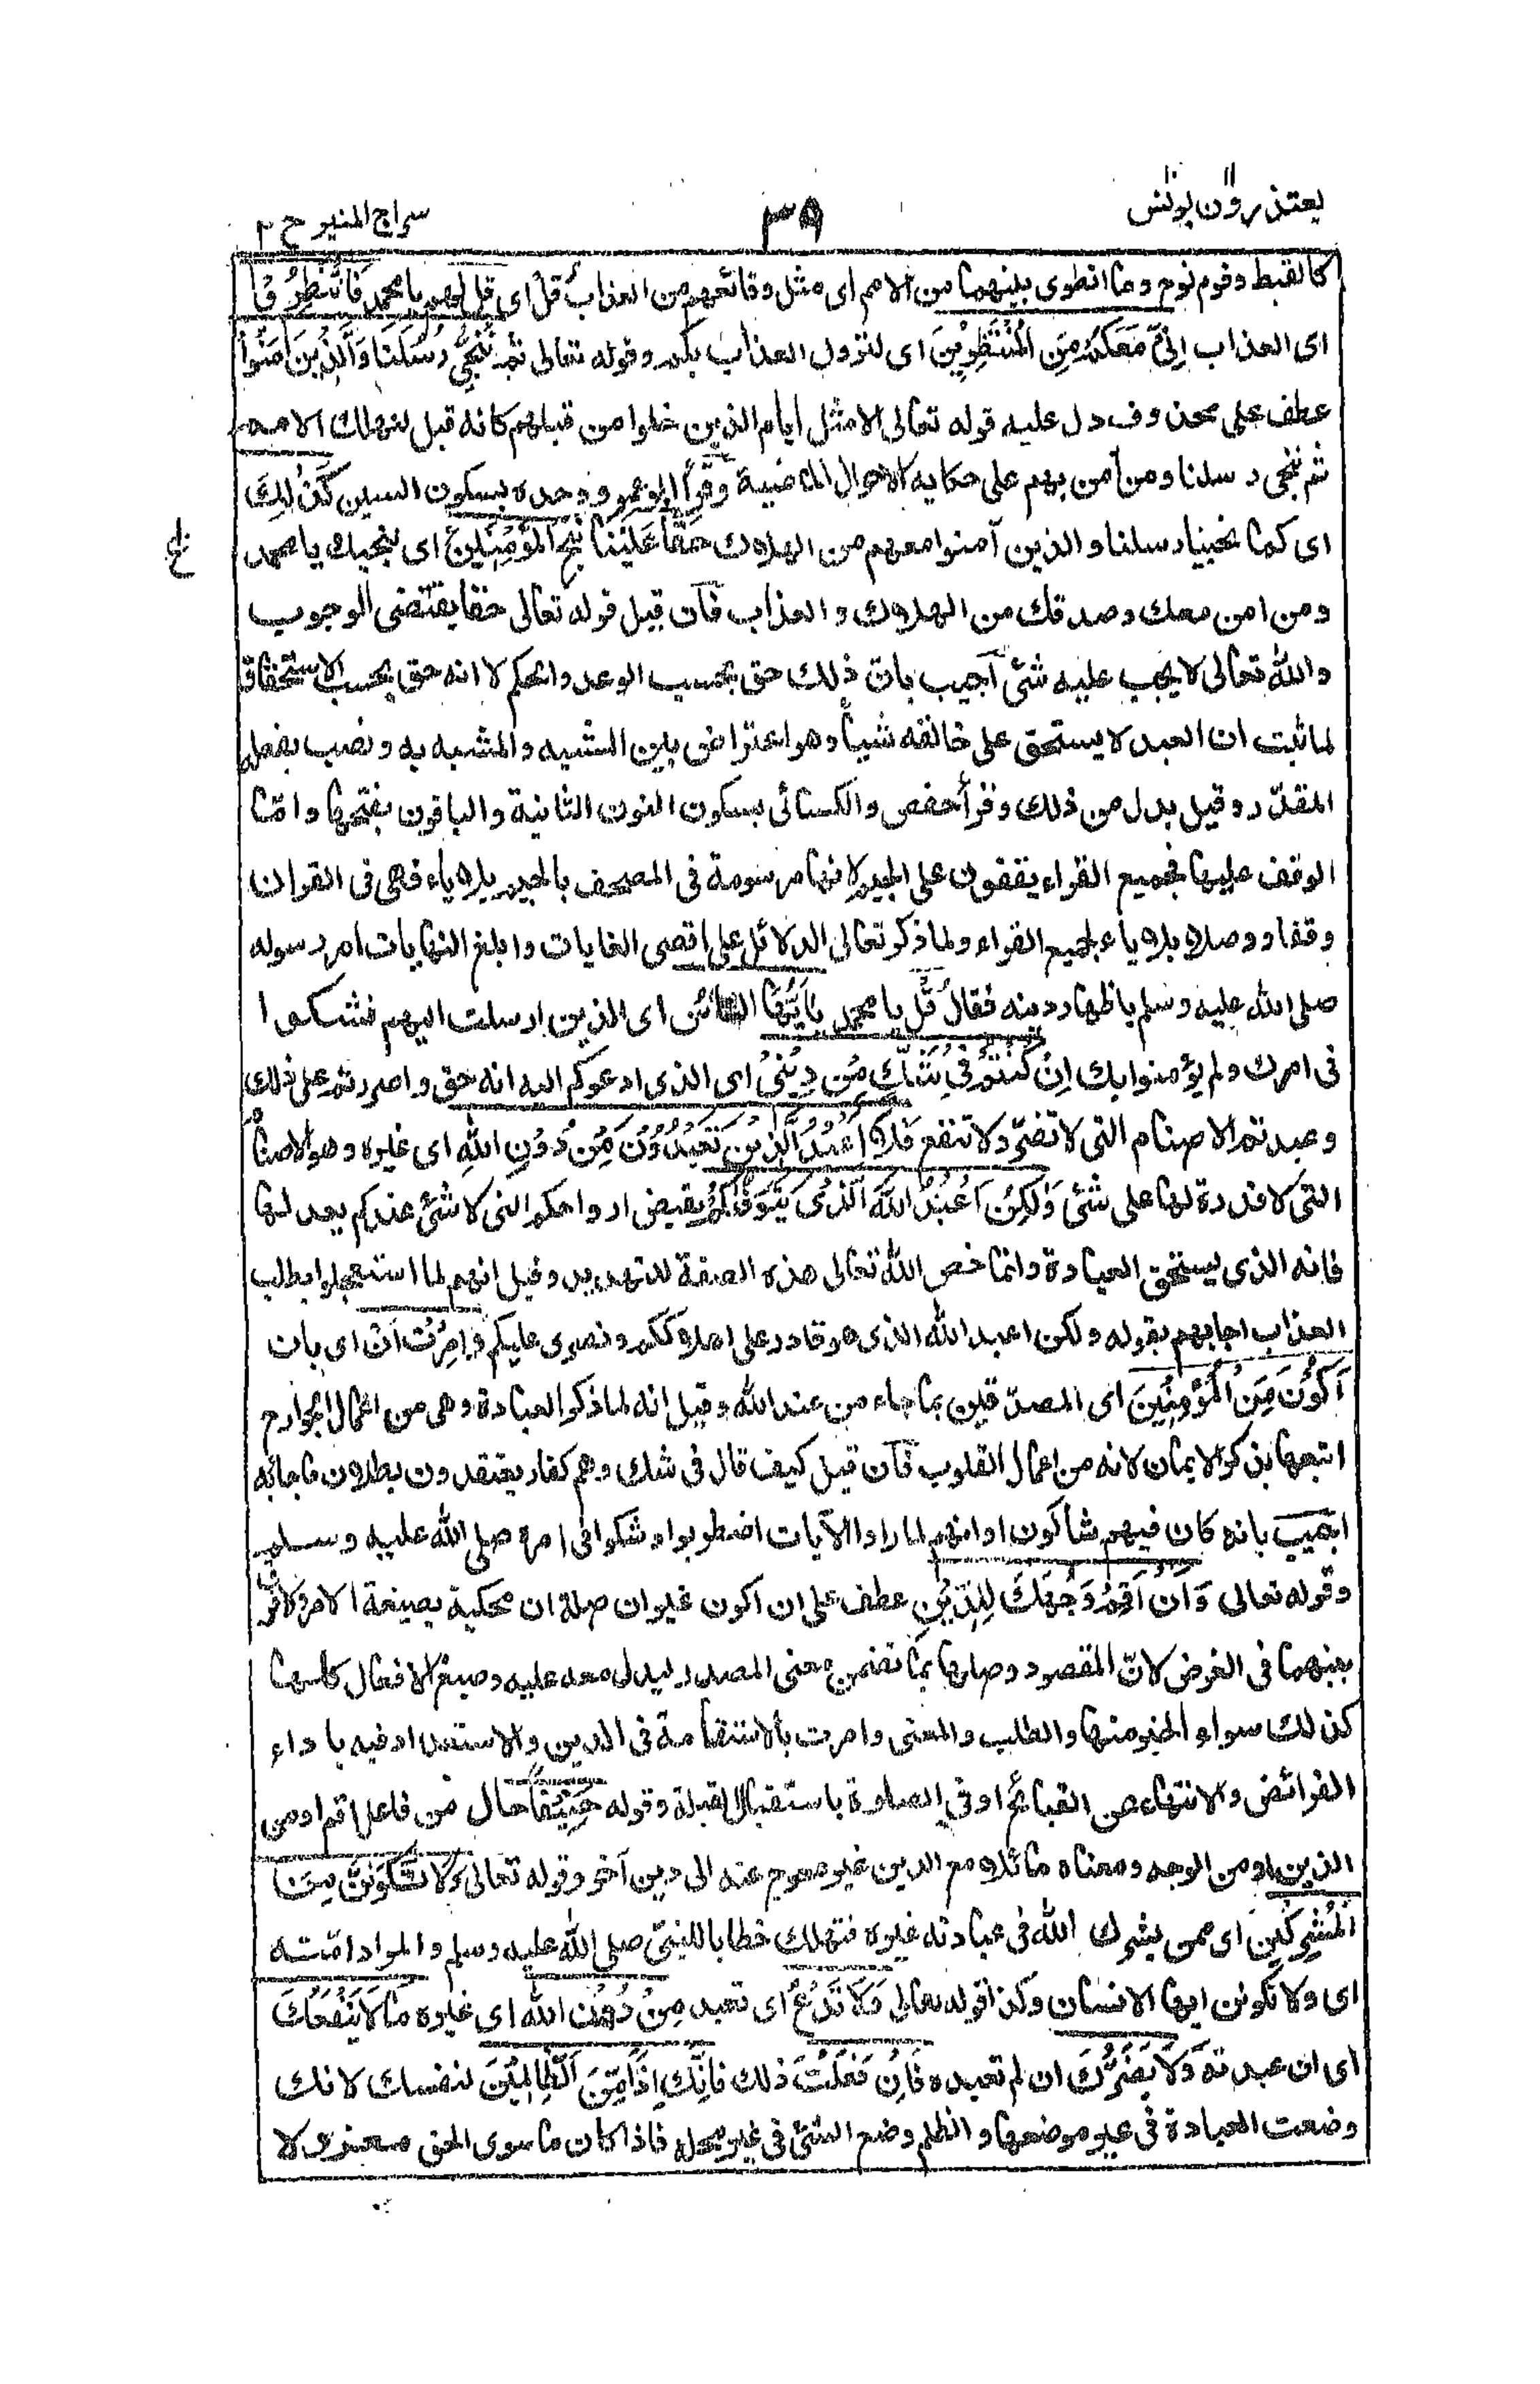 يعتذرون يونس
٣٩
سراج المنير ج ٢
كالقبط وقوم نوح وما انطوى بينهما من الامم اى مثل وقائعهم من العذاب قل اى قل لهم يا محمد فَانْتَظِرُوْٓا
اى العذاب اِنِّىْ مَعَكُمْ مِّنَ الْمُنْتَظِرِيْنَ اى لنزول العذاب بكم وقوله تعالى ثُمَّ نُنَجِّىْ رُسُلَنَا وَالَّذِيْنَ اٰمَنُوْا
عطف على محذوف دل عليه قوله تعالى الا مثل ايام الذين خلوا من قبلهم كانه قيل لنهلك الامم
ثم ننجى رسلنا ومن آمن بهم على حكاية الاحوال الماضية وقرأ ابو عمرو وحده بسكون السين كَذٰلِكَ
اى كما نجينا رسلنا والذين آمنوا معهم من الهلاك حَقًّا عَلَيْنَا نُنْجِ الْمُؤْمِنِيْنَ اى ننجيك يا محمد
ومن امن معك وصدقك من الهلاك والعذاب فان قيل قوله تعالى حقا يقتضى الوجوب
والله تعالى لا يجب عليه شئ اجيب بان ذلك حق بحسب الوعد والحكم لا انه حق بحسب الاستحقاق
لما ثبت ان العبد لا يستحق على خالقه شيأ وهو اعتراض بين المشبه والمشبه به ونصب بفعله
المقدّر وقيل بدل من ذلك وقرأ حفص والكسائى بسكون النون الثانية والباقون بفتحها وامّا
الوقف عليها فجميع القراء يقفون على الجيم لانها مرسومة فى المصحف بالجيم بلا ياء فهى فى القران
وقفا ووصلا بلا ياء لجميع القراء ولما ذكر تعالى الدلائل على اقصى الغايات وابلغ النهايات امر رسوله
صلى الله عليه وسلم باظهار دينه فقال قُلْ يا محمد يٰٓاَيُّهَا النَّاسُ اى الذين ارسلت اليهم فشكوا
فى امرك ولم يؤمنوا بك اِنْ كُنْتُمْ فِيْ شَكٍّ مِّنْ دِيْنِيْ اى الذى ادعوكم اليه انه حق واصررتم على ذلك
وعبدتم الاصنام التى لا تضرّ ولا تنفع فَلَآ اَعْبُدُ الَّذِيْنَ تَعْبُدُوْنَ مِنْ دُوْنِ اللّٰهِ اى غيره وهو الاصنام
التى لا قدرة لها على شئ وَلٰكِنْ اَعْبُدُ اللّٰهَ الَّذِيْ يَتَوَفّٰىكُمْ بقبض ارواحكم التى لا شئ عندكم يعدلها
فانه الذى يستحق العبادة وانما خص الله تعالى هذه الصفة للتهديد وقيل انهم لما استعجلوا بطلب
العذاب اجابهم بقوله ولكن اعبد الله الذى هو قادر على اهلاككم ونصرى عليكم وَاُمِرْتُ اَنْ اى بان
اَكُوْنَ مِنَ الْمُؤْمِنِيْنَ اى المصدّقين بما جاء من عند الله وقيل انه لما ذكر العبادة وهى من اعمال الجوارح
اتبعها بذكر الايمان لانه من اعمال القلوب فان قيل كيف قال فى شك وهم كفار يعتقدون بطلان ما جاء به
اجيب بانه كان فيهم شاكون او انهم لما راوا الآيات اضطربوا وشكوا فى امره صلى الله عليه وسلم
وقوله تعالى وَاَنْ اَقِمْ وَجْهَكَ لِلدِّيْنِ عطف على ان اكون غير ان صلة ان محكية بصيغة الامر ولا فرق
بينهما فى الغرض لان المقصود وصلها بما تضمن معنى المصدر ليدل معه عليه وصيغ الافعال كلها
كذلك سواء الخبر منها والطلب والمعنى وامرت بالاستقامة فى الدين والاستعداد فيه باداء
الفرائض والانتهاء عن القبائح او فى الصلوة باستقبال القبلة وقوله حَنِيْفًا حال من فاعل اقم او من
الدين او من الوجه ومعناه مائلا مع الدين غير معوج عنه الى دين آخر وقوله تعالى وَلَا تَكُوْنَنَّ مِنَ
الْمُشْرِكِيْنَ اى ممن يشرك الله فى عبادته غيره فتهلك خطابا للنبىّ صلى الله عليه وسلم والمراد امّته
اى ولا تكونن ايها الانسان وكذا قوله تعالى وَلَا تَدْعُ اى تعبد مِنْ دُوْنِ اللّٰهِ اى غيره مَا لَا يَنْفَعُكَ
اى ان عبدته وَلَا يَضُرُّكَ ان لم تعبده فَاِنْ فَعَلْتَ ذلك فَاِنَّكَ اِذًا مِّنَ الظّٰلِمِيْنَ لنفسك لانك
وضعت العبادة فى غير موضعها والظلم وضع الشئ فى غير محله فاذا كان ما سوى الحق معزولا